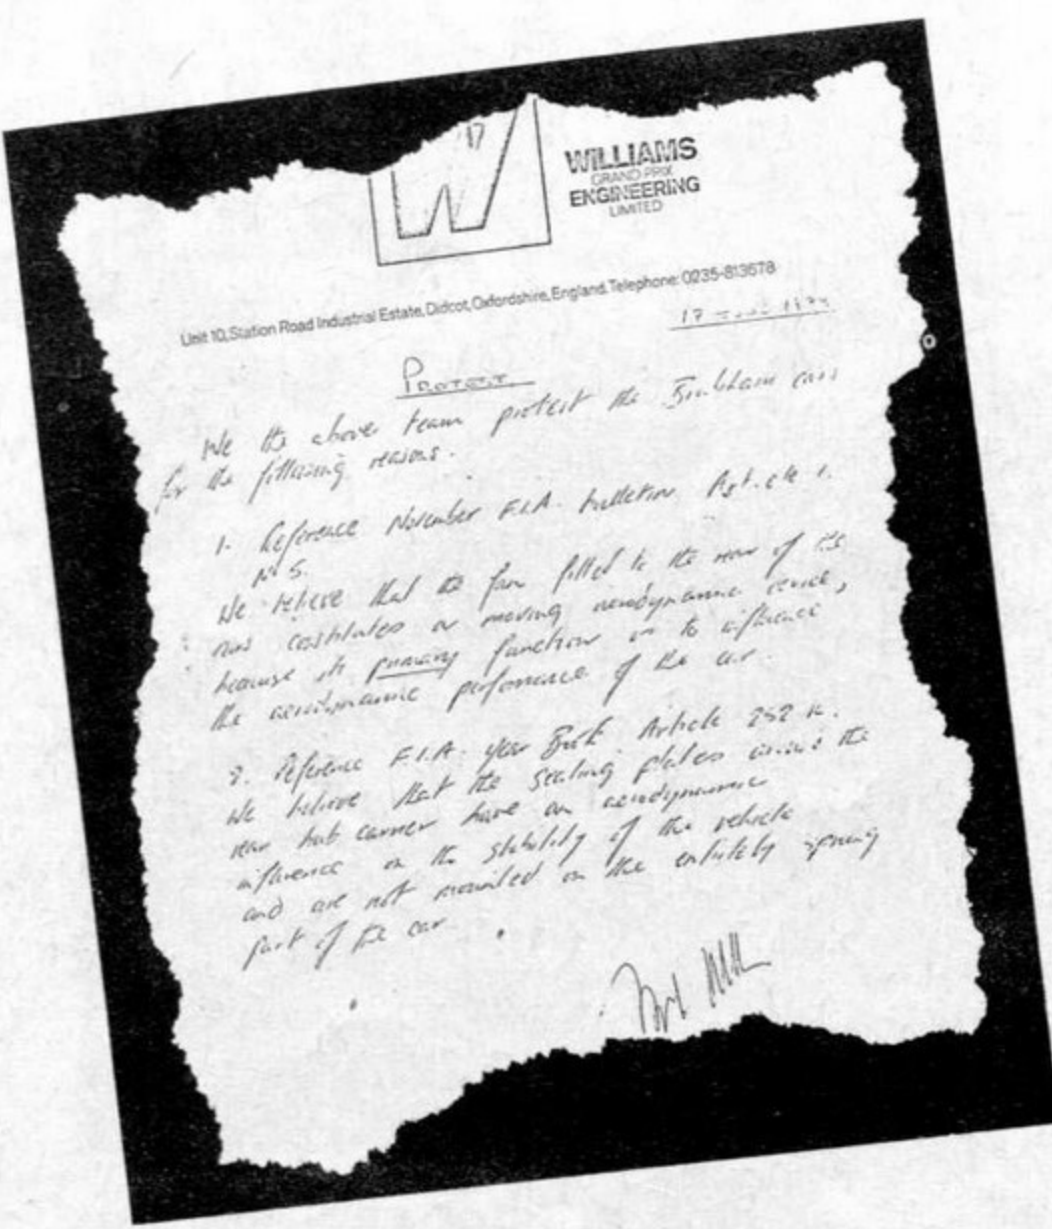 17
W
WILLIAMS
GRAND PRIX
ENGINEERING
LIMITED
Unit 10, Station Road Industrial Estate, Didcot, Oxfordshire, England. Telephone: 0235-813678
17
PROTEST
We the above team protest the Brabham cars
for the following reasons.
1. Reference November F.I.A. bulletin Article 1.
No 5.
We believe that the fan fitted to the rear of the
cars constitutes a moving aerodynamic device,
because its primary function is to influence
the aerodynamic performance of the car.
2. Reference F.I.A. year Book Article 252 k.
We believe that the sealing plates around the
rear hub carrier have an aerodynamic
influence on the stability of the vehicle
and are not mounted on the entirely sprung
part of the car